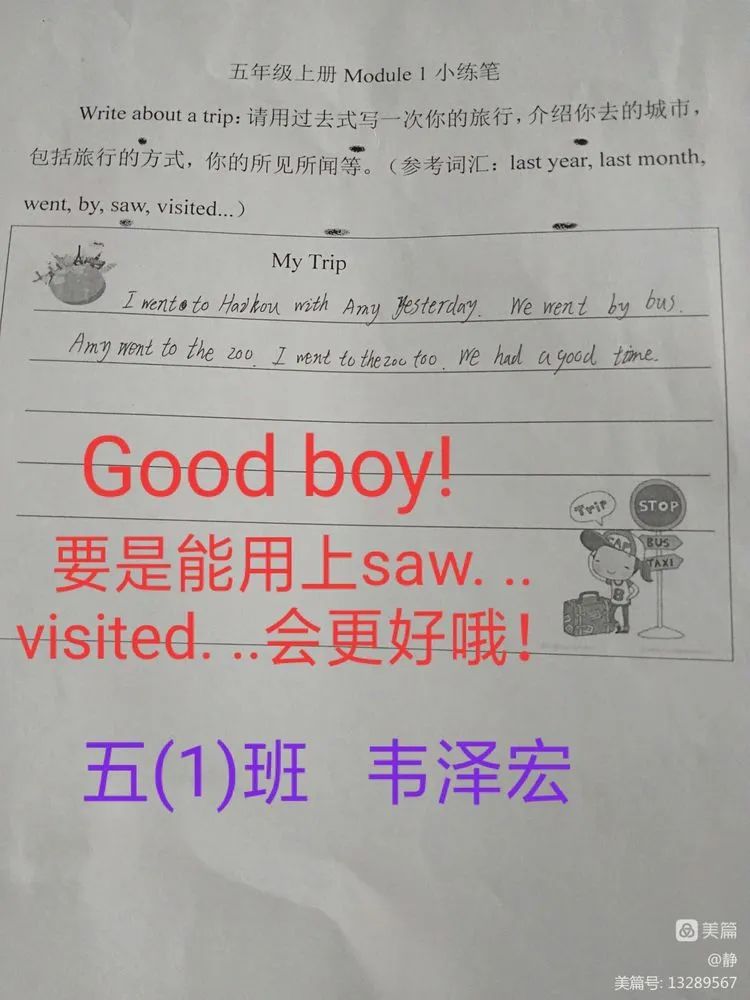 五年级上册 Module 1 小练笔
Write about a trip: 请用过去式写一次你的旅行，介绍你去的城市，
包括旅行的方式，你的所见所闻等。（参考词汇：last year, last month,
went, by, saw, visited...）
My Trip
I went to Haikou with Amy Yesterday. We went by bus.
Amy went to the zoo. I went to the zoo too. We had a good time.
Good boy!
要是能用上saw. ..
visited. ..会更好哦！
Trip
STOP
CAP
BUS
TAXI
8
五(1)班 韦泽宏
美篇
@静
美篇号: 13289567